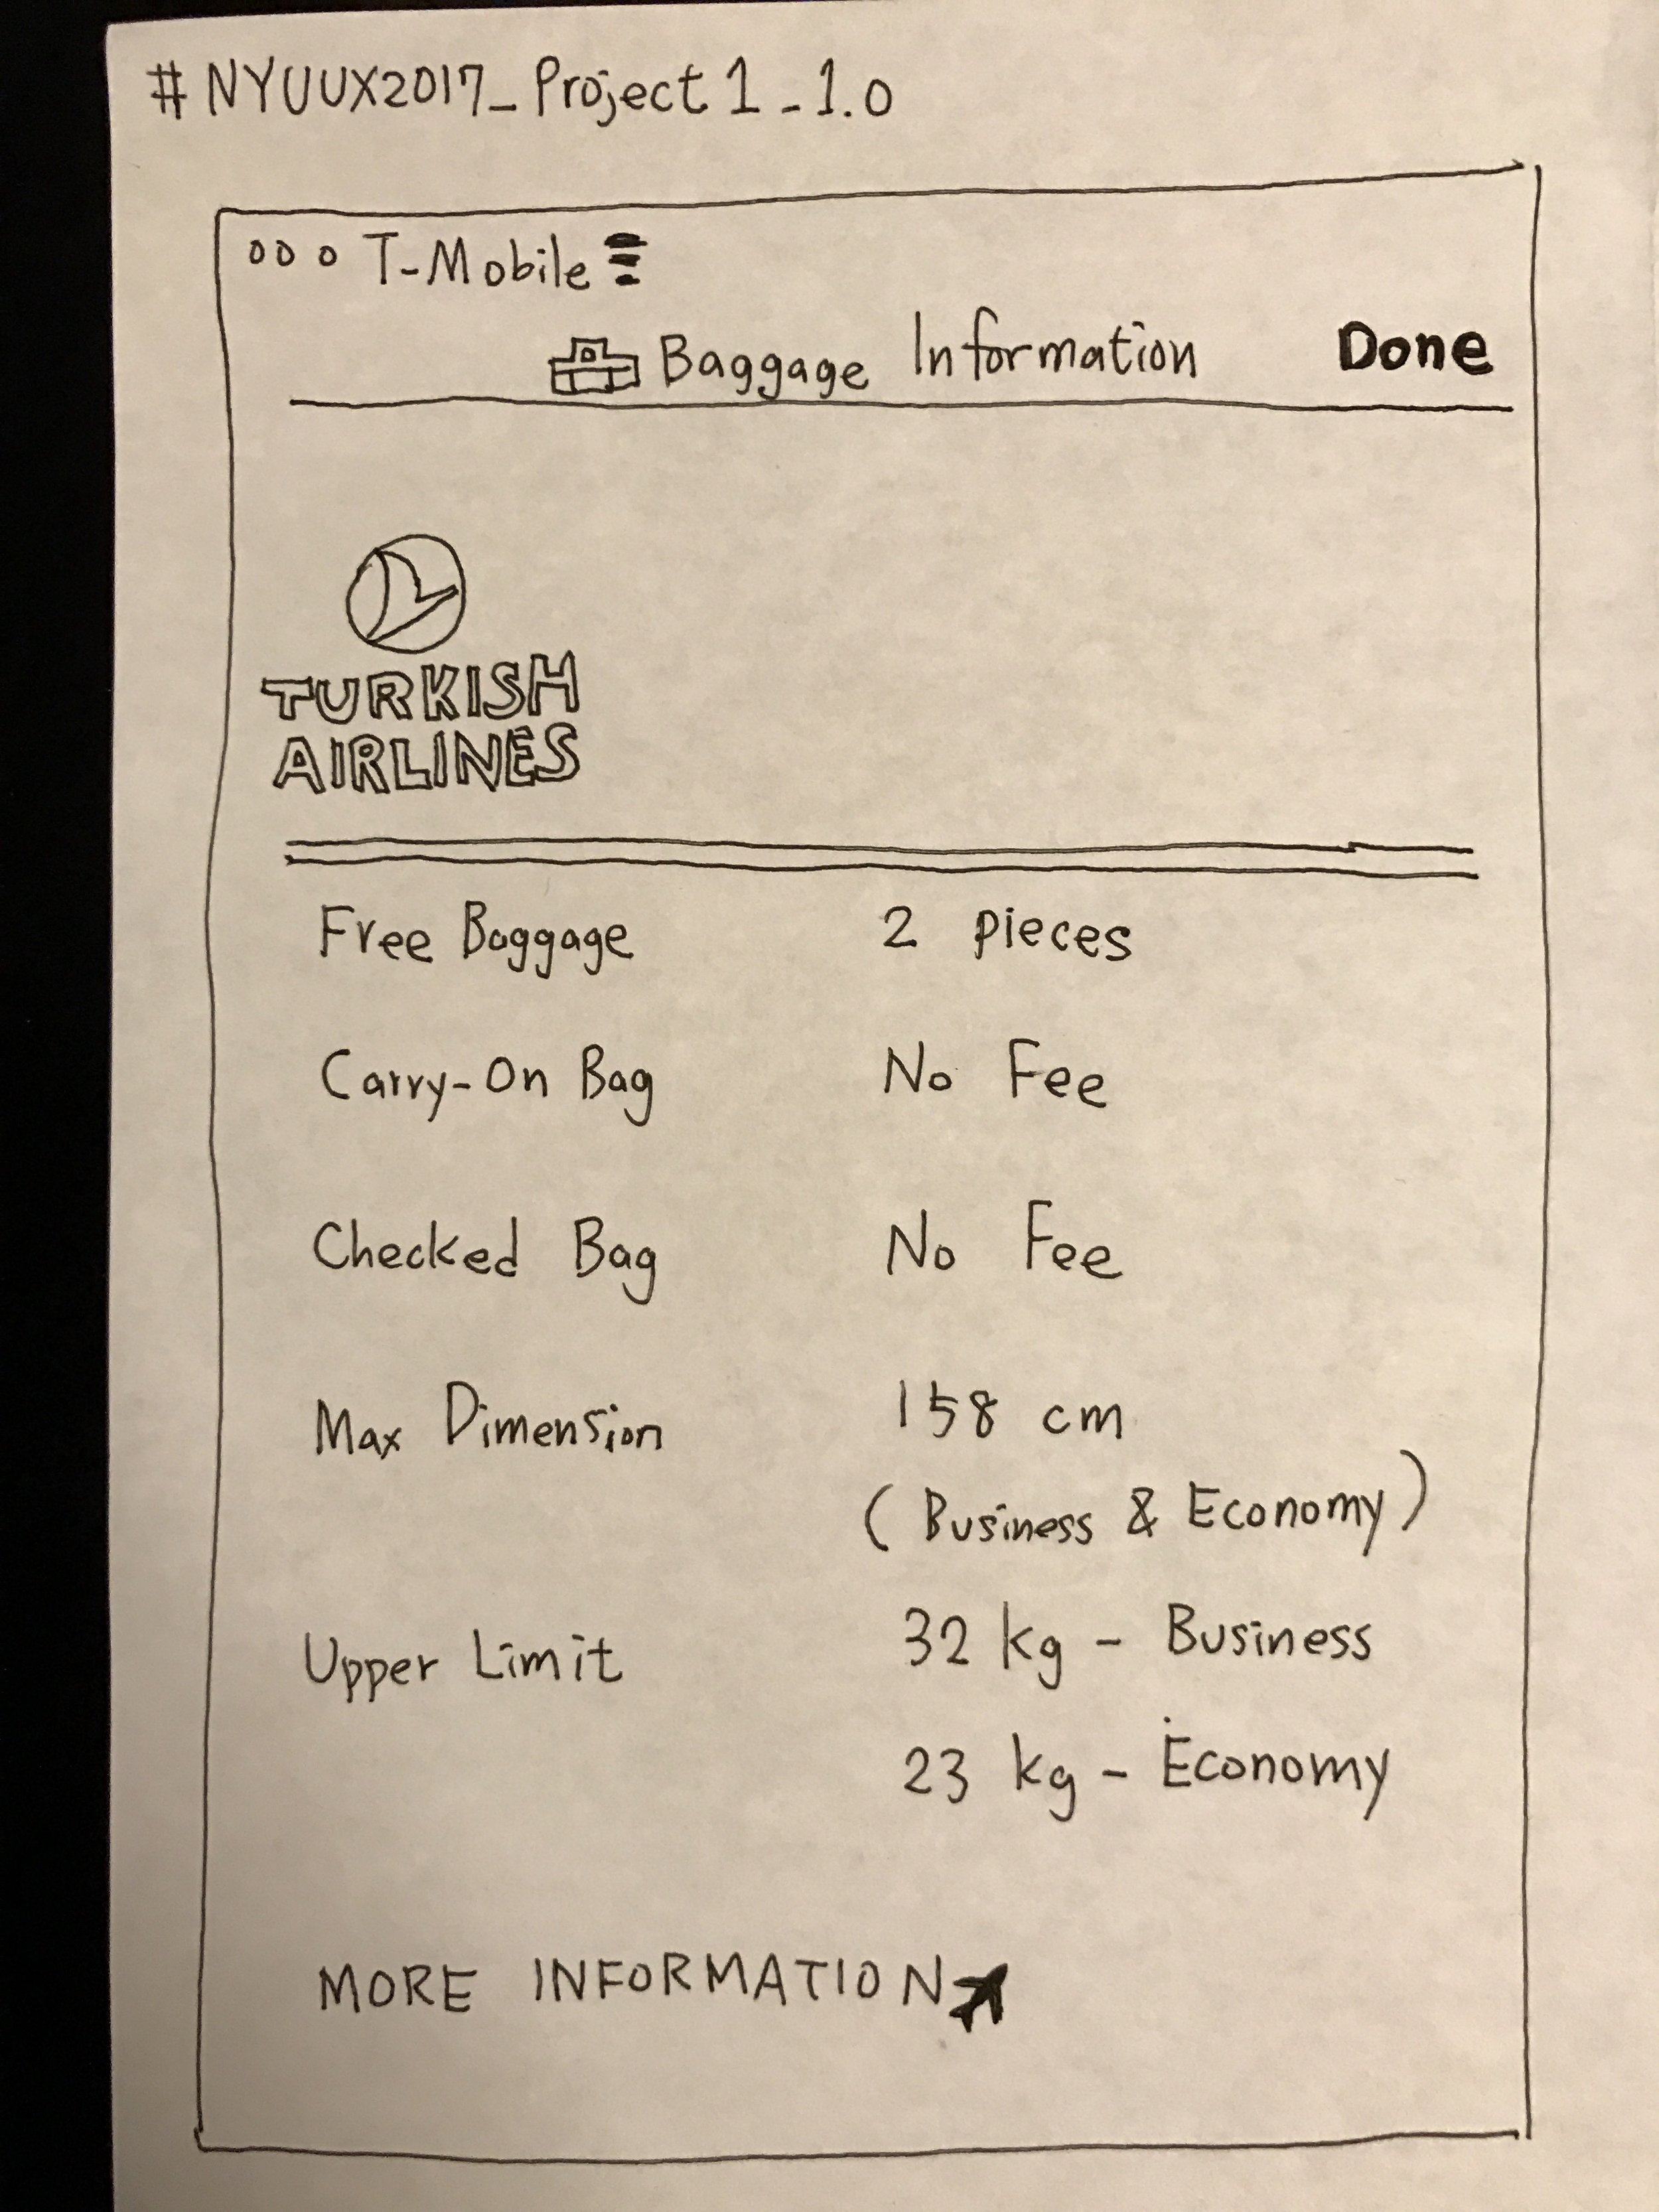 # NYUUX2017_Project 1_1.0
T-Mobile
Baggage Information Done
TURKISH
AIRLINES
Free Baggage 2 pieces
Carry-On Bag No Fee
Checked Bag No Fee
Max Dimension 158 cm
(Business & Economy)
Upper Limit 32 kg - Business
23 kg - Economy
MORE INFORMATION